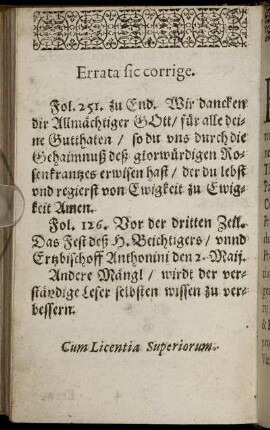 Errata sic corrige.
Fol. 251. zu End. Wir dancken
dir Allmächtiger GOtt / für alle dei-
ne Gutthaten / so du vns durch die
Gehaimnuß deß glorwürdigen Ro-
senkrantzes erwisen hast / der du lebst
vnd regierst von Ewigkeit zu Ewig-
keit Amen.
Fol. 126. Vor der dritten Zeil.
Das Fest deß H. Beichtigers / vnnd
Ertzbischoff Anthonini den 2. Maij.
Andere Mängl / wirdt der ver-
ständige Leser selbsten wissen zu ver-
bessern.
Cum Licentia Superiorum.